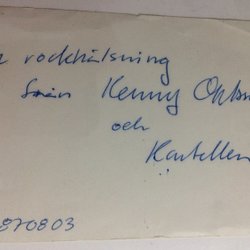 rockhälsning
från Kenny
och
Kartellen
870803